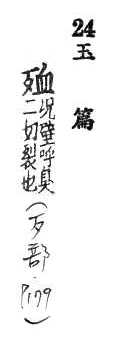 24
玉篇
殈
况壁呼臭
二切裂也
(歹部. P.179)